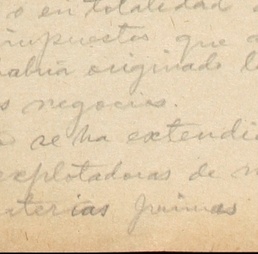 o en totalidad
impuestos que
habria originado l
s negocios.
se ha extendi
explotadoras de
materias primas